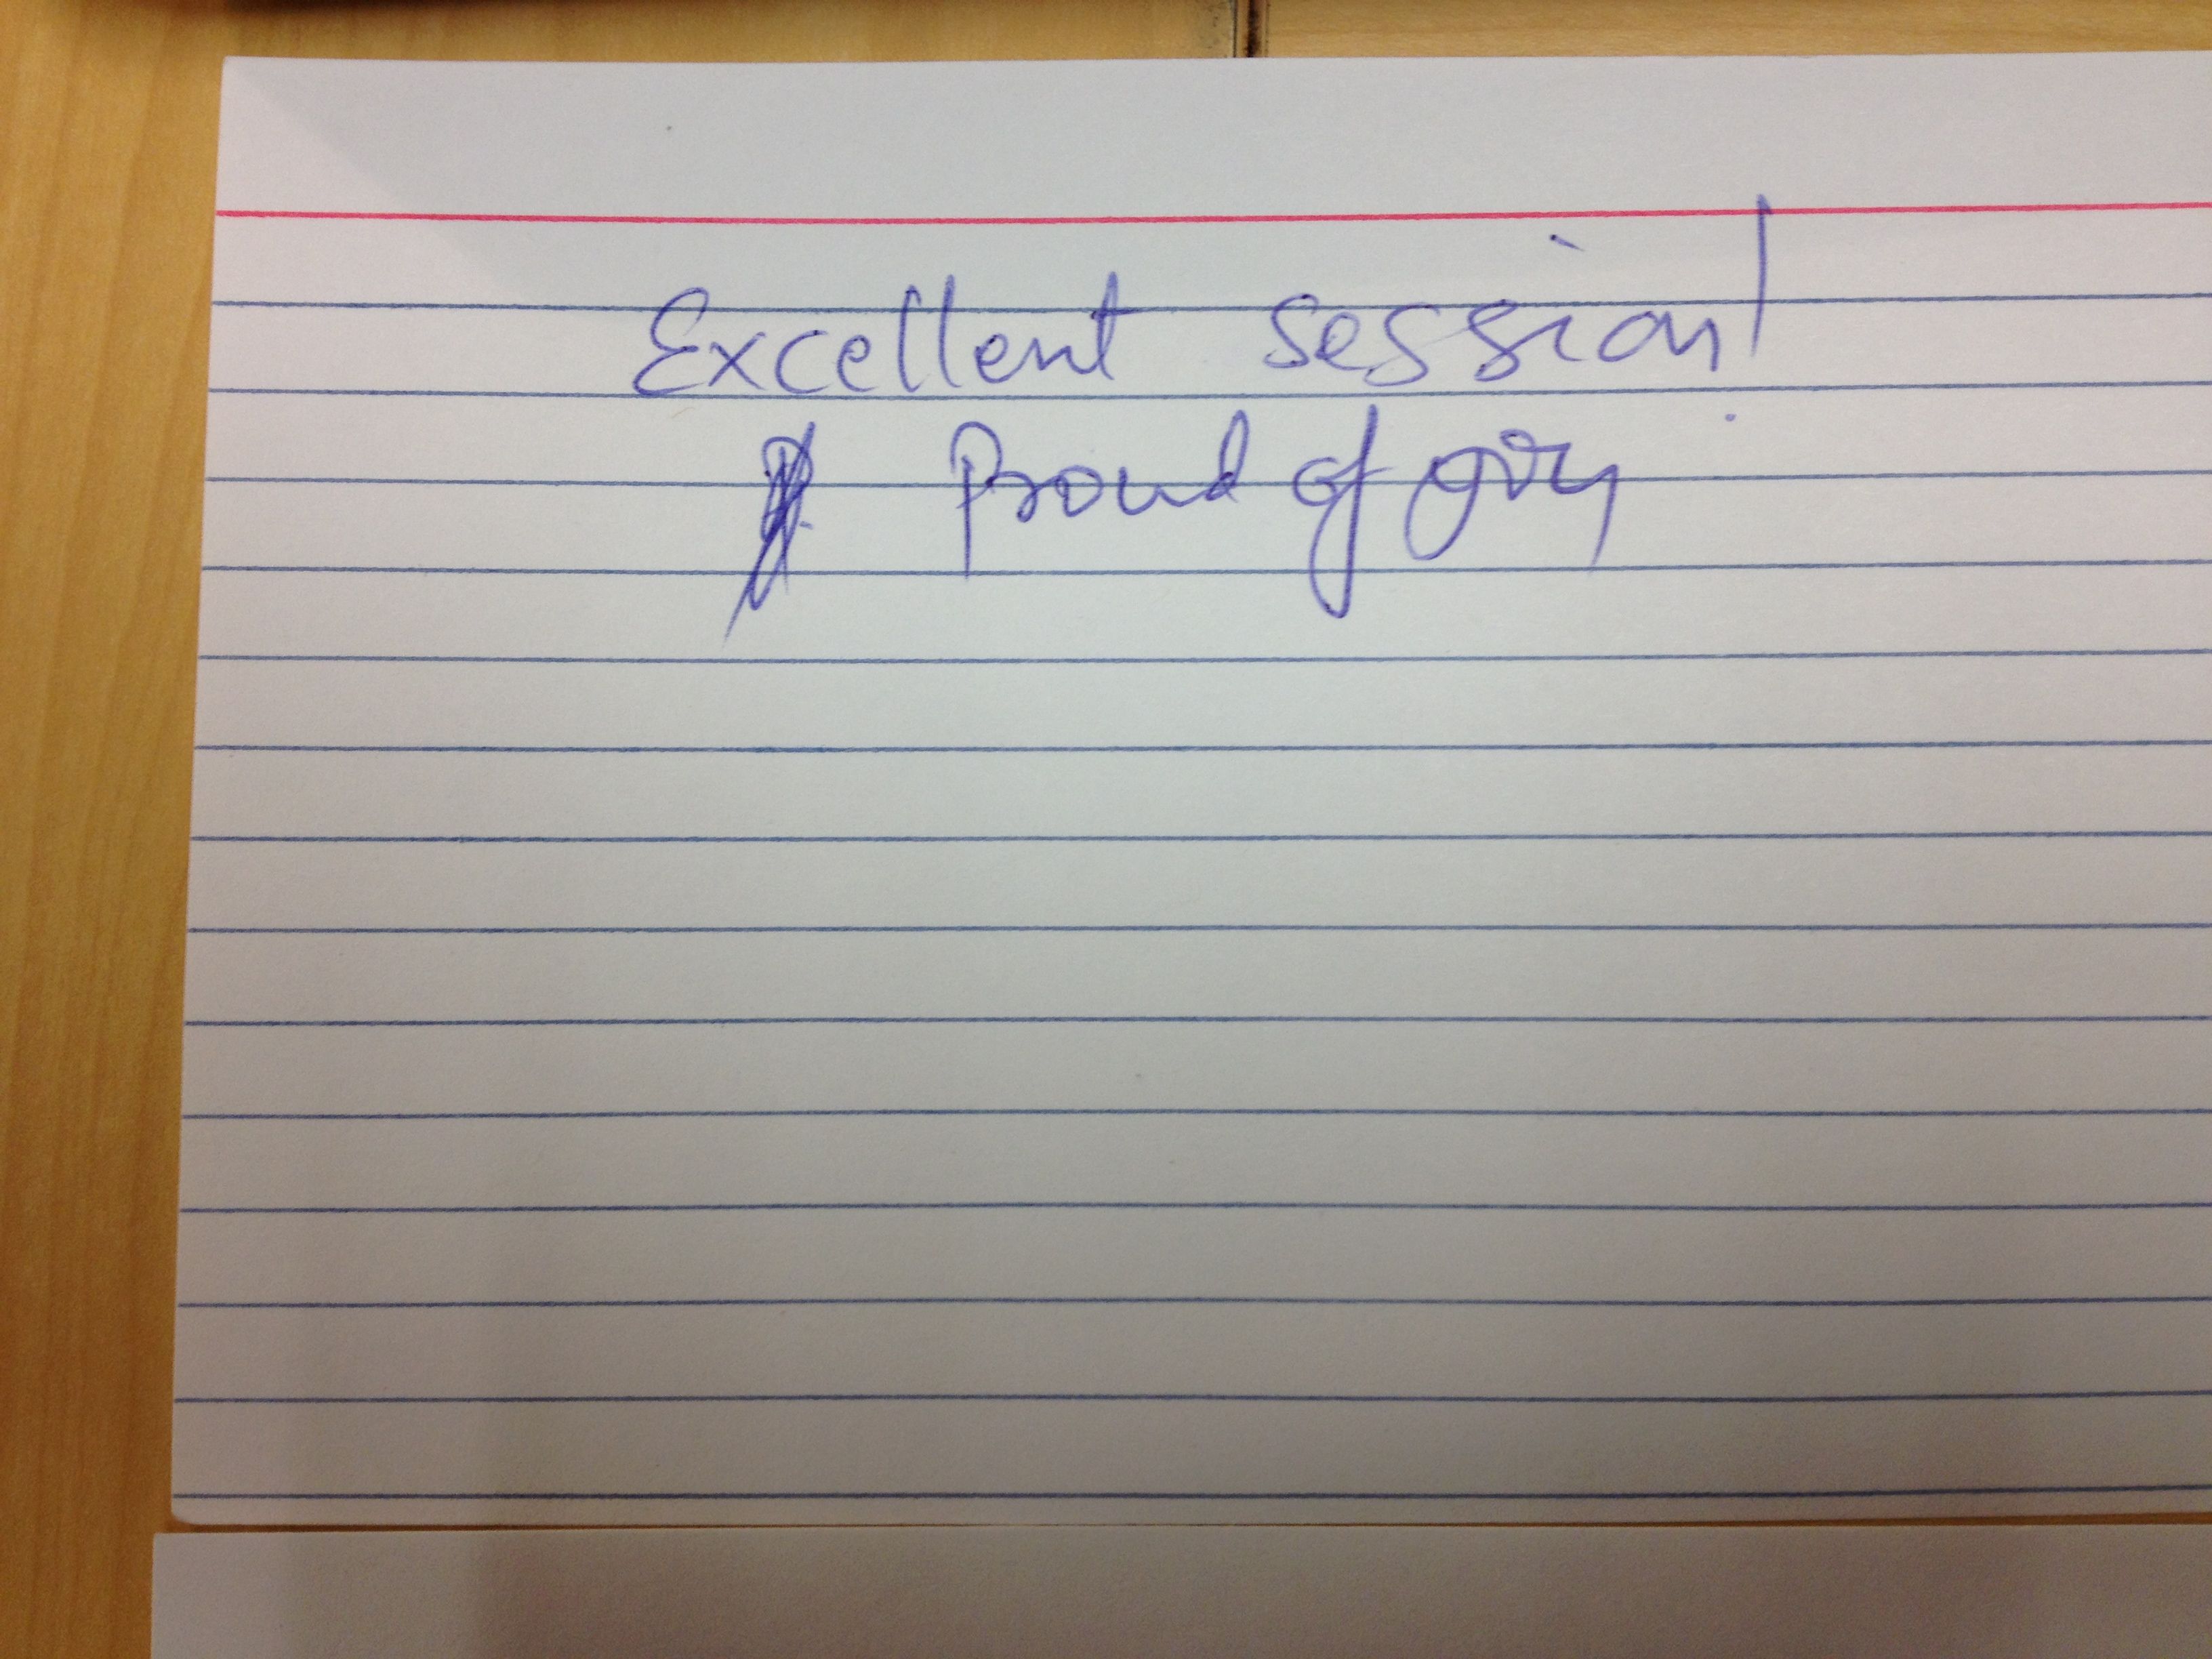 Excellent session!
Proud of